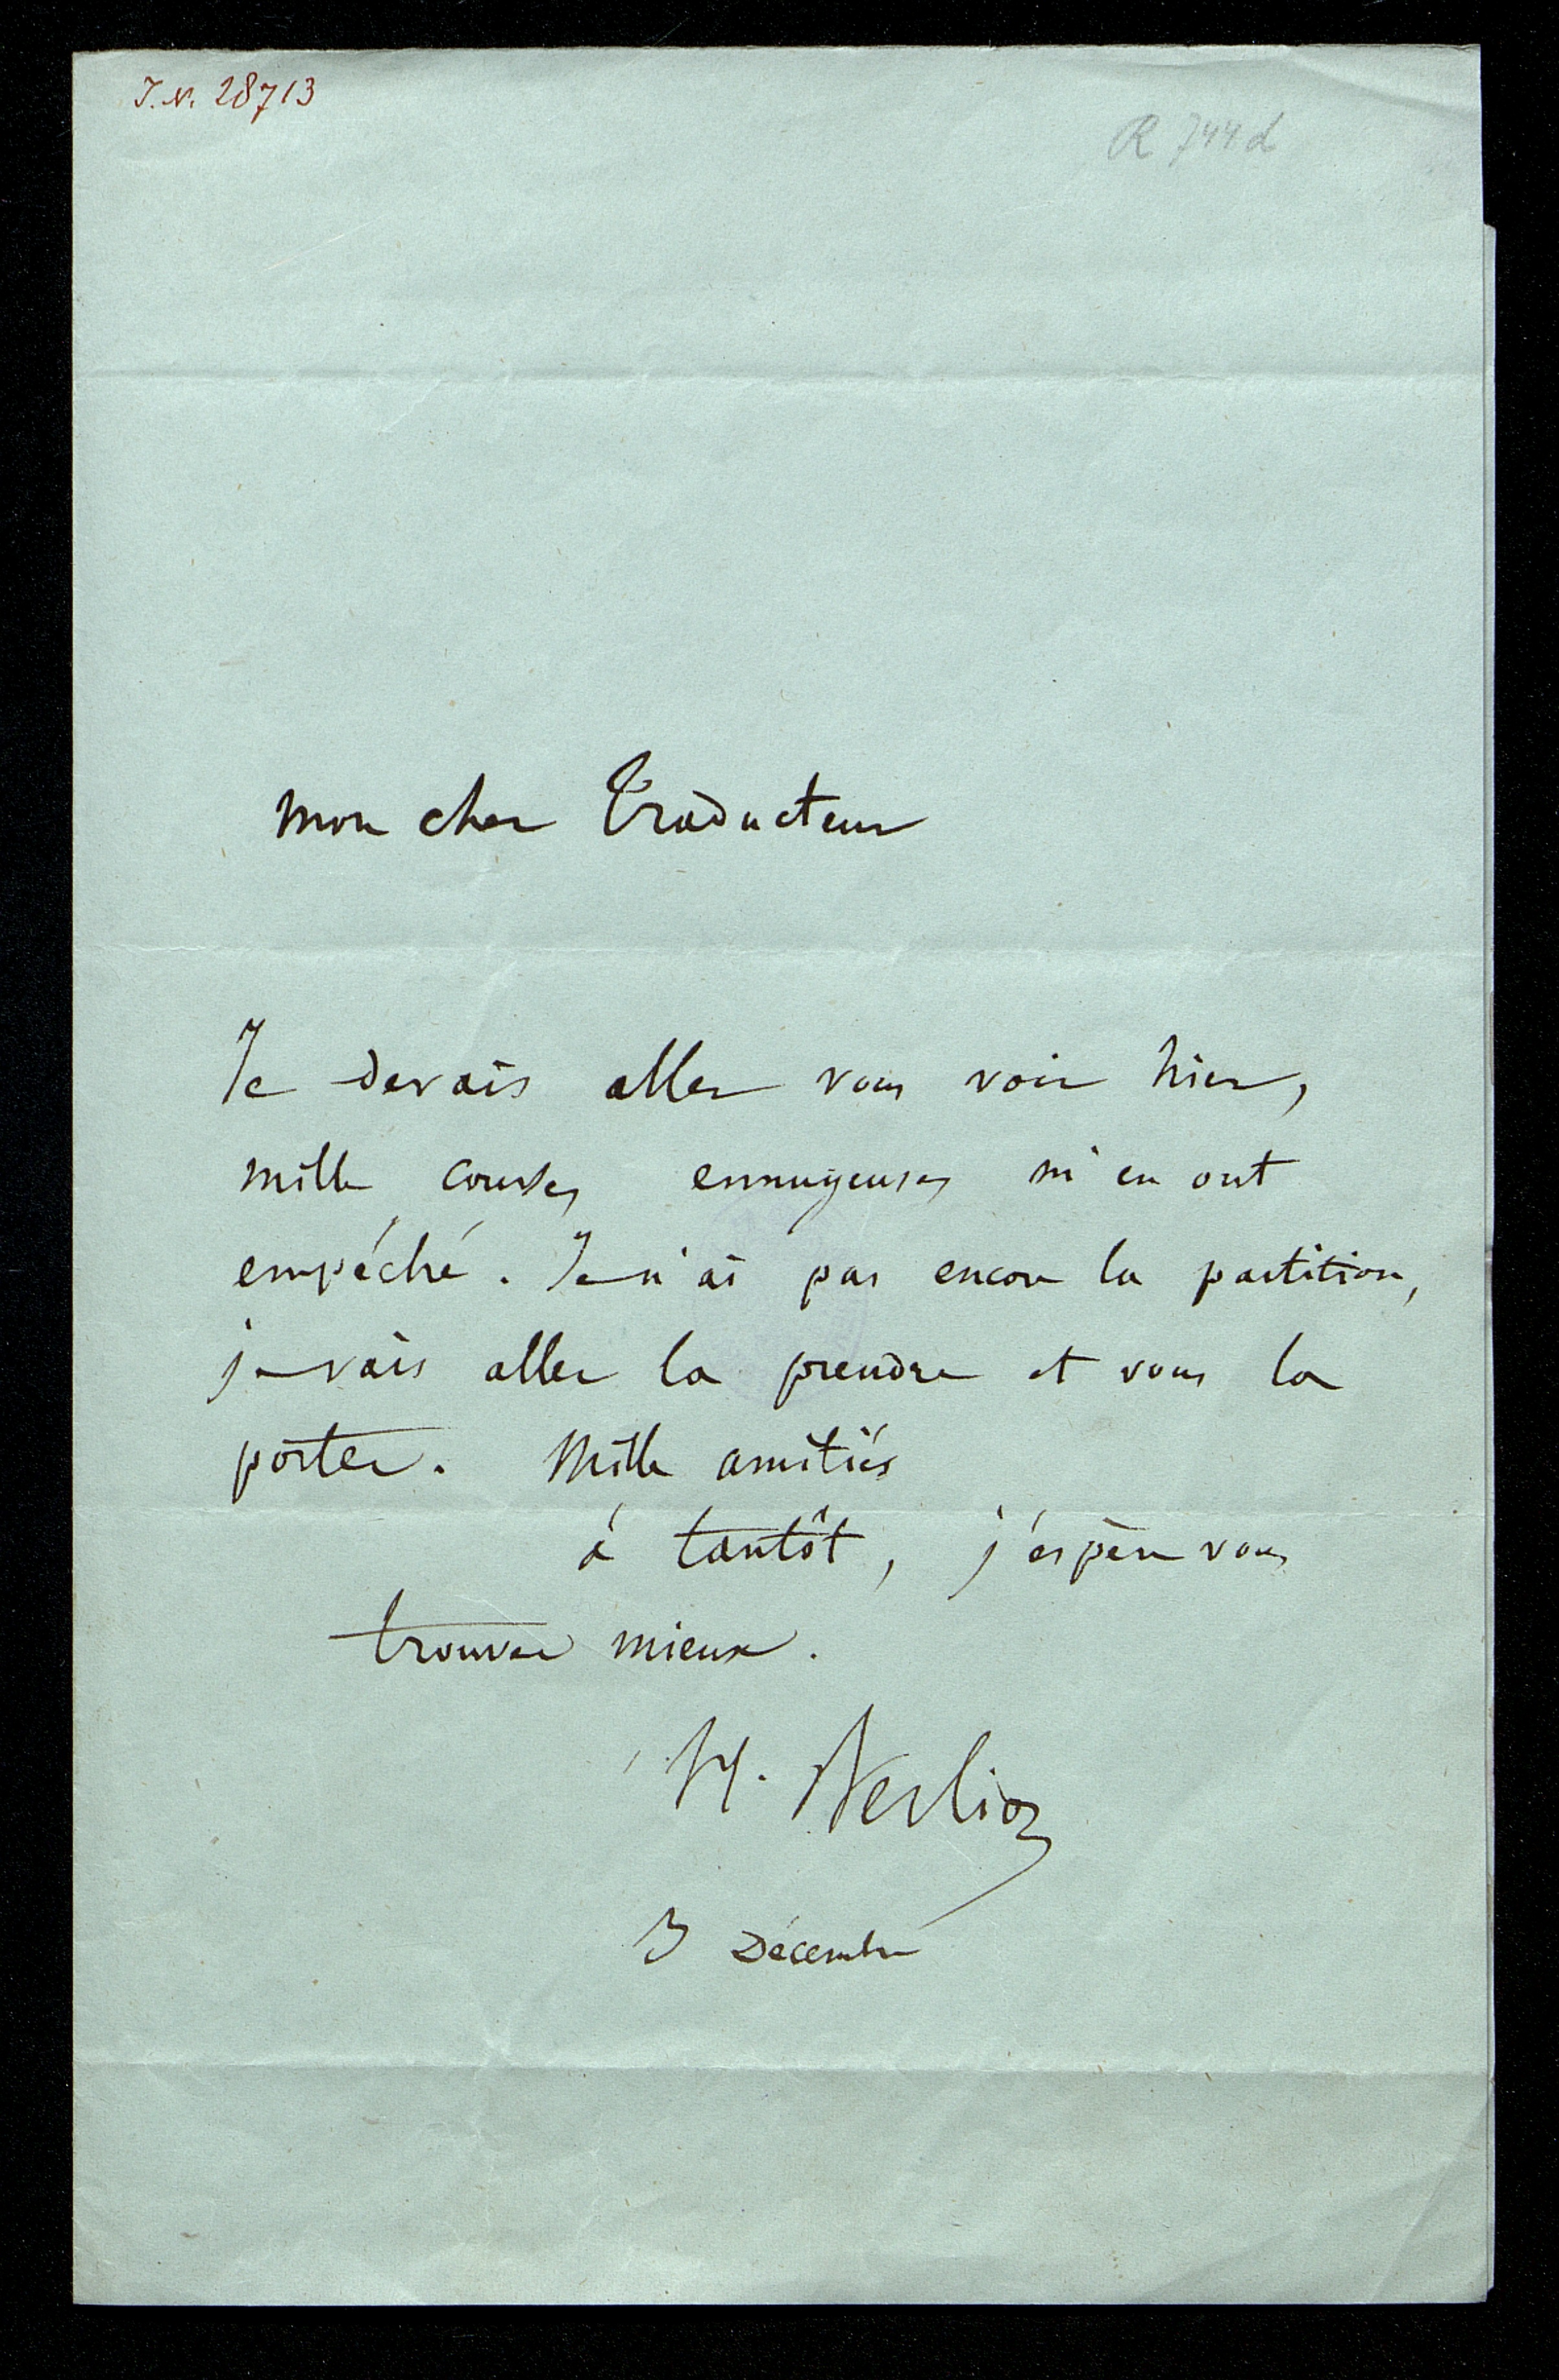 I.N. 28713
R 744d
mon cher Traducteur
Je devais aller vous voir hier,
mille courses ennuyeuses m'en ont
empéché. Je n'ai pas encore la partition,
je vais aller la prendre et vous la
porter. Mille amitiés
à tantôt, j'espère vous
trouver mieux.
H. Berlioz
3 Décembre